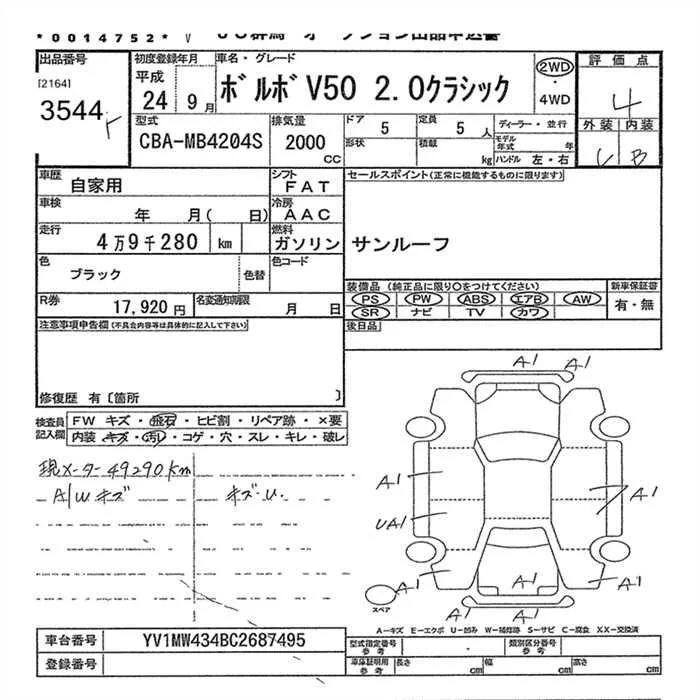 *0014752* V
出品番号 初度登録年月 車名・グレード 評価点
[2164] 平成 ボルボ V50 2.0クラシック 2WD 4
3544 24年 9月 4WD
型式 排気量 ドア 5 定員 5人 ディーラー・並行 外装 内装
CBA-MB4204S 2000 CC 形状 積載 kg モデル年式 年 B
ハンドル 左・右
車歴 自家用 シフト FAT セールスポイント(正常に機能するものに限ります)
車検 年 月( 日) 冷房 AAC
走行 4万9千280 km 燃料 ガソリン サンルーフ
色 ブラック 色替 色コード
装備品 (純正品に限り○をつけてください) 新車保証書
R券 17,920円 名変通知期限 月 日 PS PW ABS エアB AW 有・無
SR ナビ TV カワ
注意事項申告欄(不具合内容等は具体的に記入して下さい) 後日品
修復歴 有〔箇所 〕
検査員記入欄 FW キズ・飛石・ヒビ割・リペア跡・×要
内装 キズ・汚レ・コゲ・穴・スレ・キレ・破レ
現メーター49290km
A/Wキズ キズ・U.
A1 A1
A1 A1
UA1
A1 A1 A1
スペア A1 A1
A-キズ E-エクボ U-凹み W-補修跡 S-サビ C-腐食 XX-交換済
車台番号 YV1MW434BC2687495 型式指定番号参考 ・ 類別区分番号参考
登録番号 車庫証明用参考 長さ cm 幅 cm 高さ cm